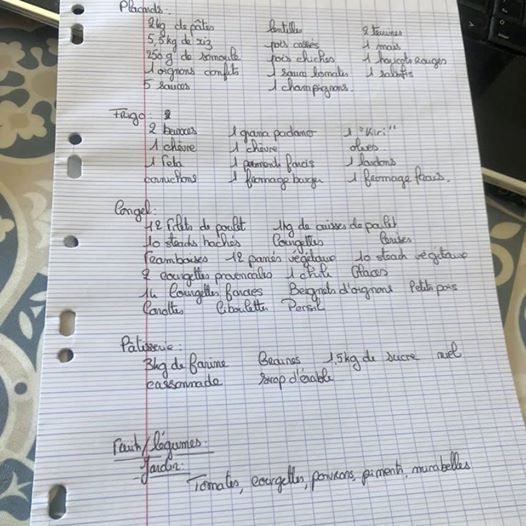 Placards:
2kg de pâtes lentilles 2 thunnes
5,5kg de riz pois cassés 1 maïs
250g de semoule pois chiches 1 haricots rouges
1 oignons confits 1 sauce tomates 1 salsifis
5 sauces 1 champignons.
Frigo:
2 beurres 1 grana padano 1 "Kiri"
1 chèvre 1 chèvre olives
1 feta 1 piments farcis 1 lardons
cornichons 1 fromage burger 1 fromage frais.
Congel:
12 filets de poulet 1kg de cuisses de poulet
10 steaks hachés Courgettes Cerises
Framboises 12 panés végétaux 10 steak végétaux
2 courgettes provençales 1 chili Glaces
14 Courgettes farcies Beignets d'oignons Petits pois
Carottes Ciboulettes Persil
Patisserie:
3kg de farine 1,5kg de sucre miel
cassonnade sirop d'érable
Fruits/légumes:
-Jardin:
Tomates, courgettes, poivrons, piments, mirabelles